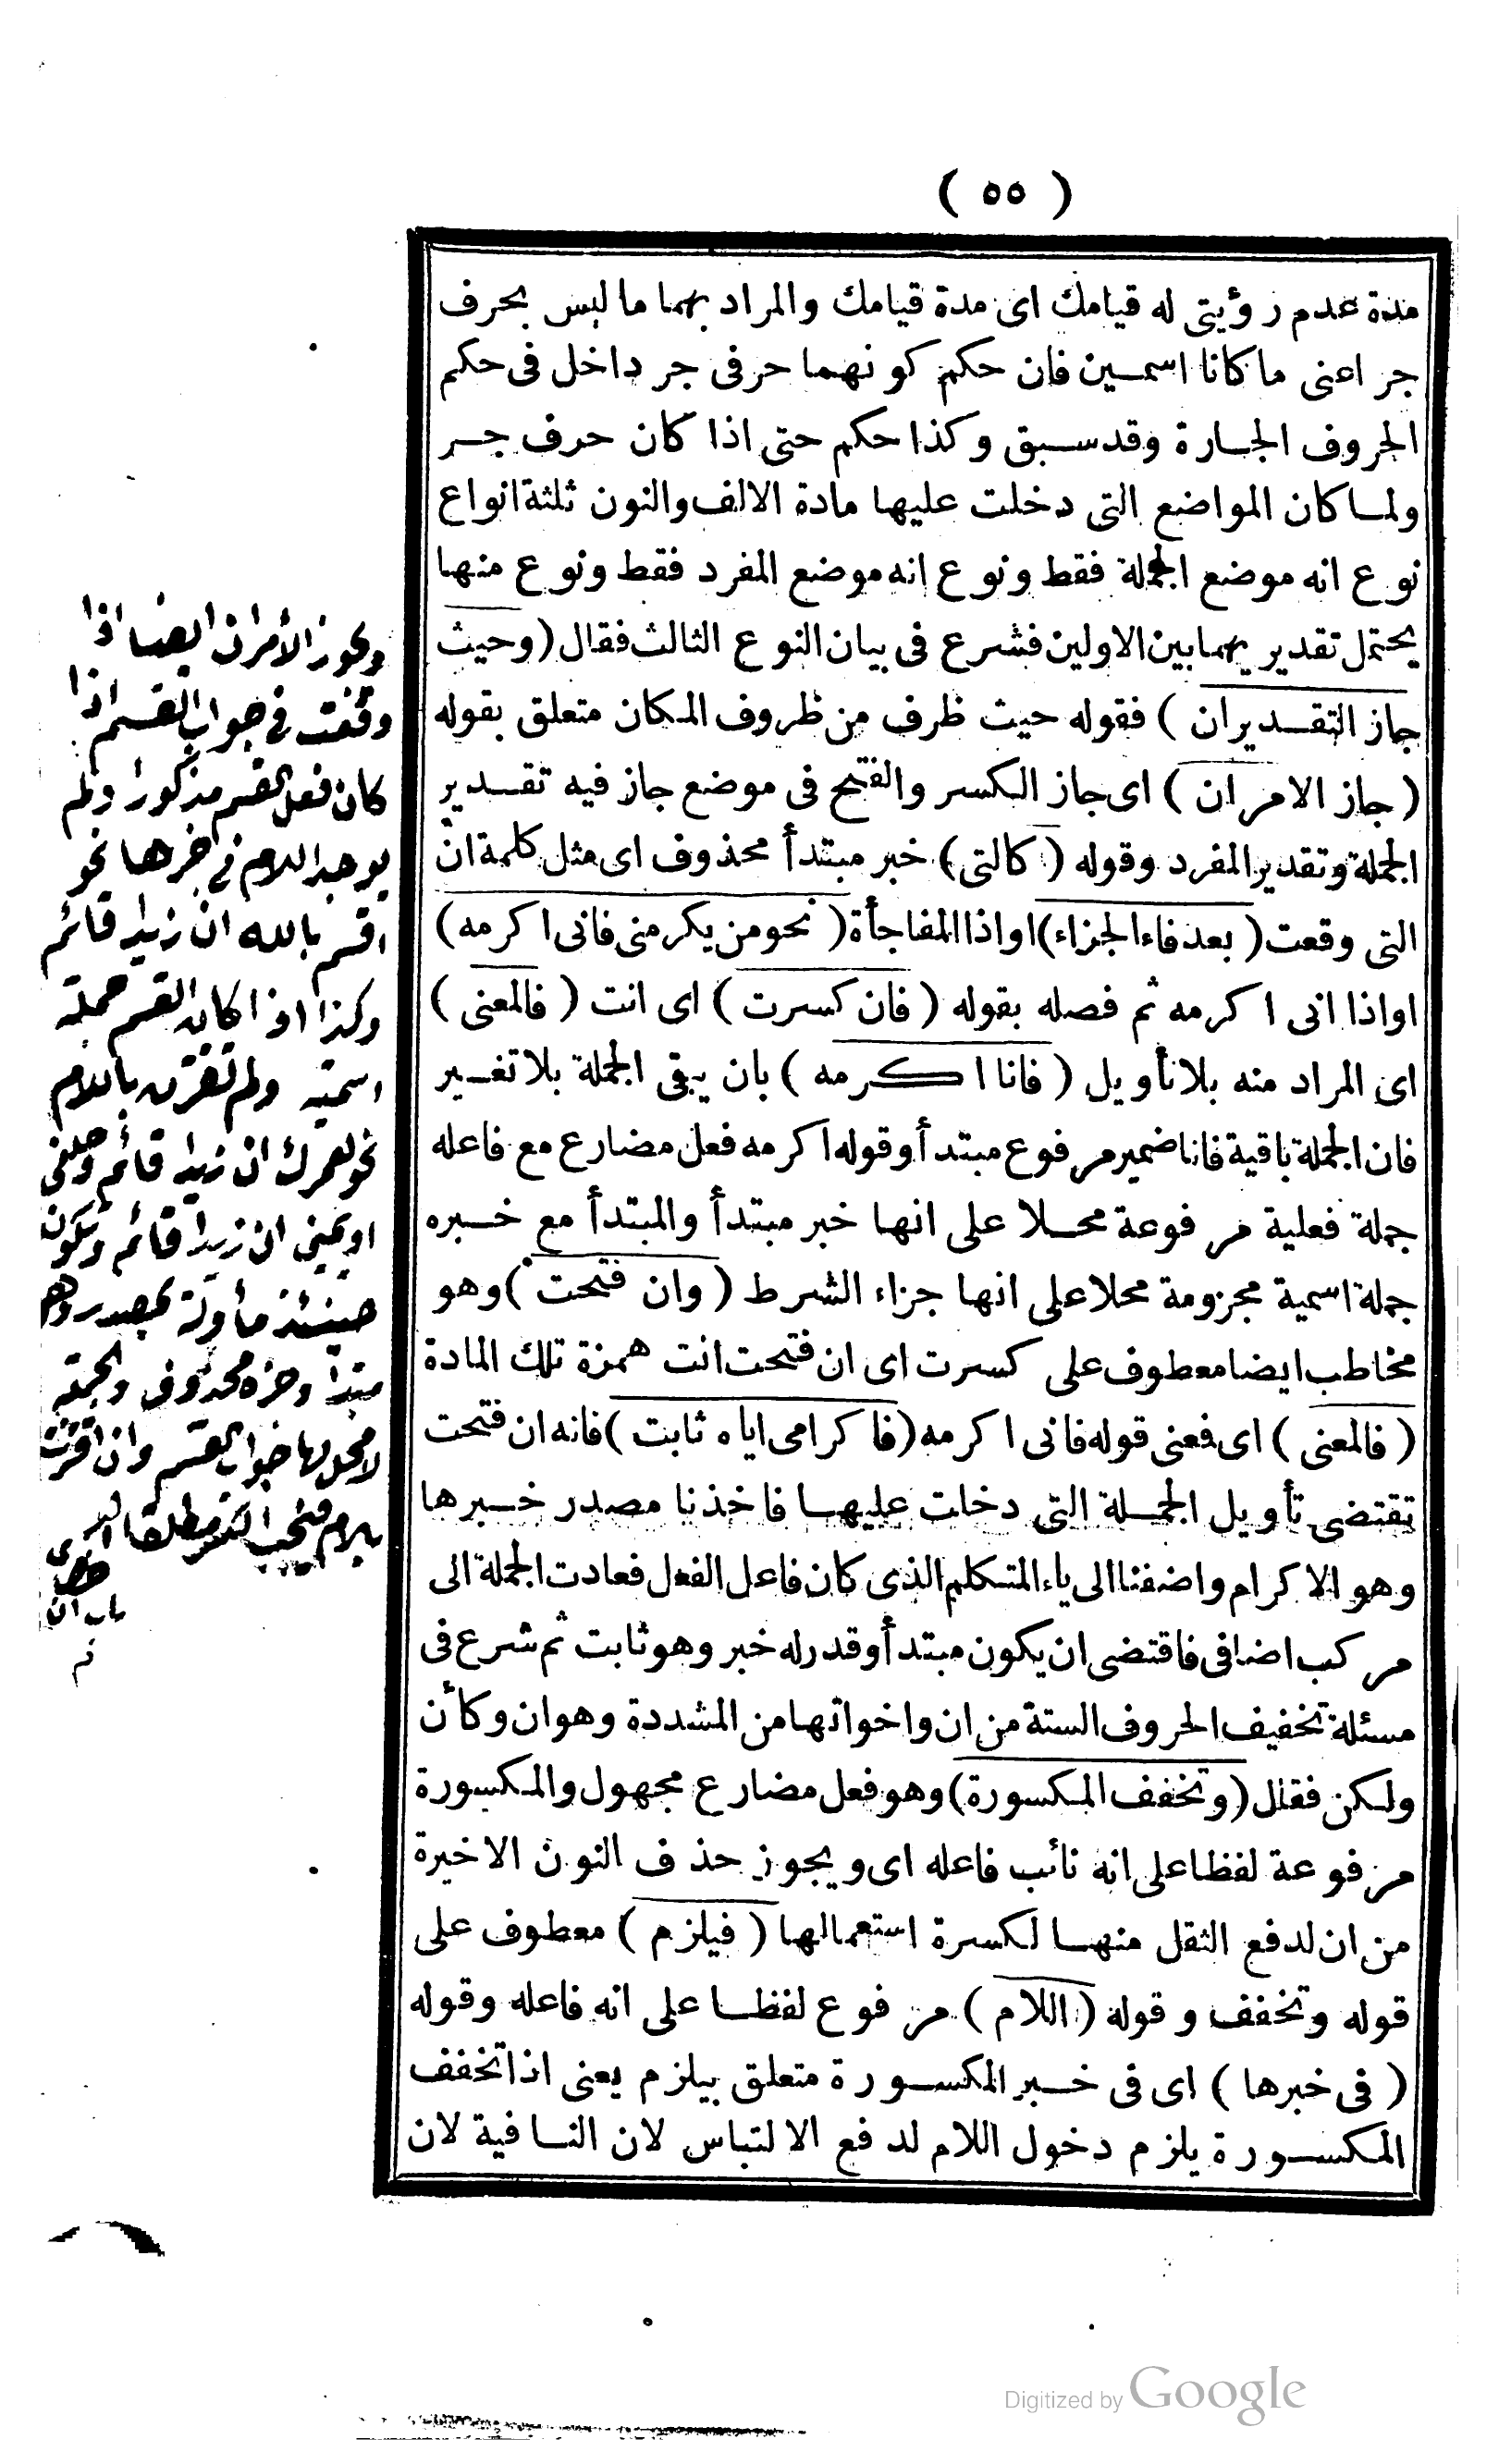 ( ٥٥ )
مدة عدم رؤيتى له قيامك اى مدة قيامك والمراد بهما ما ليس بحرف
جر اعنى ما كانا اسمين فان حكم كونهما حرفى جر داخل فى حكم
الحروف الجارة وقد سبق وكذا حكم حتى اذا كان حرف جر
ولما كان المواضع التى دخلت عليها مادة الالف والنون ثلثة انواع
نوع انه موضع الجملة فقط ونوع انه موضع المفرد فقط ونوع منها
يحتمل تقديريهما بين الاولين فشرع فى بيان النوع الثالث فقال ( وحيث
جاز التقديران ) فقوله حيث ظرف من ظروف المكان متعلق بقوله
( جاز الامران ) اى جاز الكسر والفتح فى موضع جاز فيه تقدير
الجملة وتقدير المفرد وقوله ( كالتى ) خبر مبتدأ محذوف اى مثل كلمة ان
التى وقعت ( بعد فاء الجزاء ) او اذا المفاجأة ( نحو من يكرمنى فانى اكرمه )
او اذا انى اكرمه ثم فصله بقوله ( فان كسرت ) اى انت ( فالمعنى )
اى المراد منه بلا تأويل ( فانا اكرمه ) بان يبقى الجملة بلا تغيير
فان الجملة باقية فانا ضمير مرفوع مبتدأ وقوله اكرمه فعل مضارع مع فاعله
جملة فعلية مرفوعة محلا على انها خبر مبتدأ والمبتدأ مع خبره
جملة اسمية مجزومة محلا على انها جزاء الشرط ( وان فتحت ) وهو
مخاطب ايضا معطوف على كسرت اى ان فتحت انت همزة تلك المادة
( فالمعنى ) اى فعنى قوله فانى اكرمه ( فاكرامى اياه ثابت ) فانه ان فتحت
تقتضى تأويل الجملة التى دخلت عليها فاخذنا مصدر خبرها
وهو الاكرام واضفنا الى ياء المتكلم الذى كان فاعل الفعل فعادت الجملة الى
مركب اضافى فاقتضى ان يكون مبتدأ وقدر له خبر وهو ثابت ثم شرع فى
مسئلة تخفيف الحروف الستة من ان واخواتها من المشددة وهو ان وكأن
ولكن فقال ( وتخفف المكسورة ) وهو فعل مضارع مجهول والمكسورة
مرفوعة لفظا على انه نائب فاعله اى ويجوز حذف النون الاخيرة
من ان لدفع الثقل منها لكسرة استعمالها ( فيلزم ) معطوف على
قوله وتخفف وقوله ( اللام ) مرفوع لفظا على انه فاعله وقوله
( فى خبرها ) اى فى خبر المكسورة متعلق بيلزم يعنى اذا تخفف
المكسورة يلزم دخول اللام لدفع الالتباس لان النافية لان
ويجوز الأمران ايضا اذا
وقعت فى جواب القسم اذا
كان فعل القسم مذكورا ولم
يوجد اللام فى خبرها نحو
اقسم بالله ان زيدا قائم
وكذا اذا كان القسم جملة
اسمية ولم تقترن باللام
نحو لعمرك ان زيدا قائم وحلفى
او يمينى ان زيدا قائم وتكون
حينئذ مأولة بمصدر وهو
مبتدأ وخبره محذوف والجملة
لا محل لها جواب القسم وان اقترنت
باللام فيجب الكسر مطلقا
باب ان
Digitized by Google